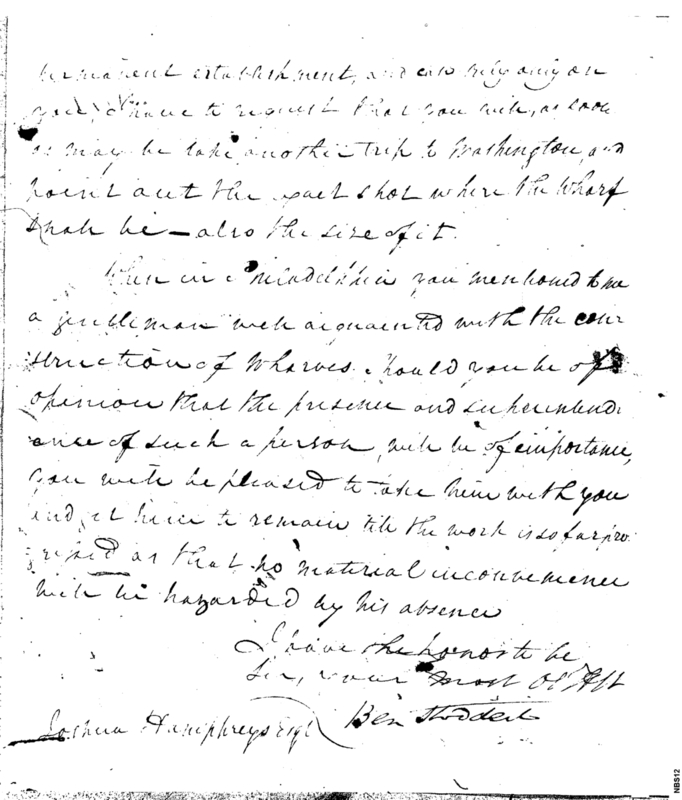 permanent establishment, and as I rely only on
you, I have to request that you will, as soon
as may be take another trip to Washington, and
point out the exact spot where the Wharf
shall be — also the size of it.
When in Philadelphia you mentioned to me
a gentleman well acquainted with the con-
struction of Wharves. Should you be of
opinion that the presence and superintend-
ance of such a person, will be of importance,
you will be pleased to take him with you
and get him to remain till the work is so far pro-
gressed as that no material inconvenience
will be hazarded by his absence
I have the honor to be
Sir, your most Ob St
Ben Stoddert
Joshua Humphreys Esqr
NBS12